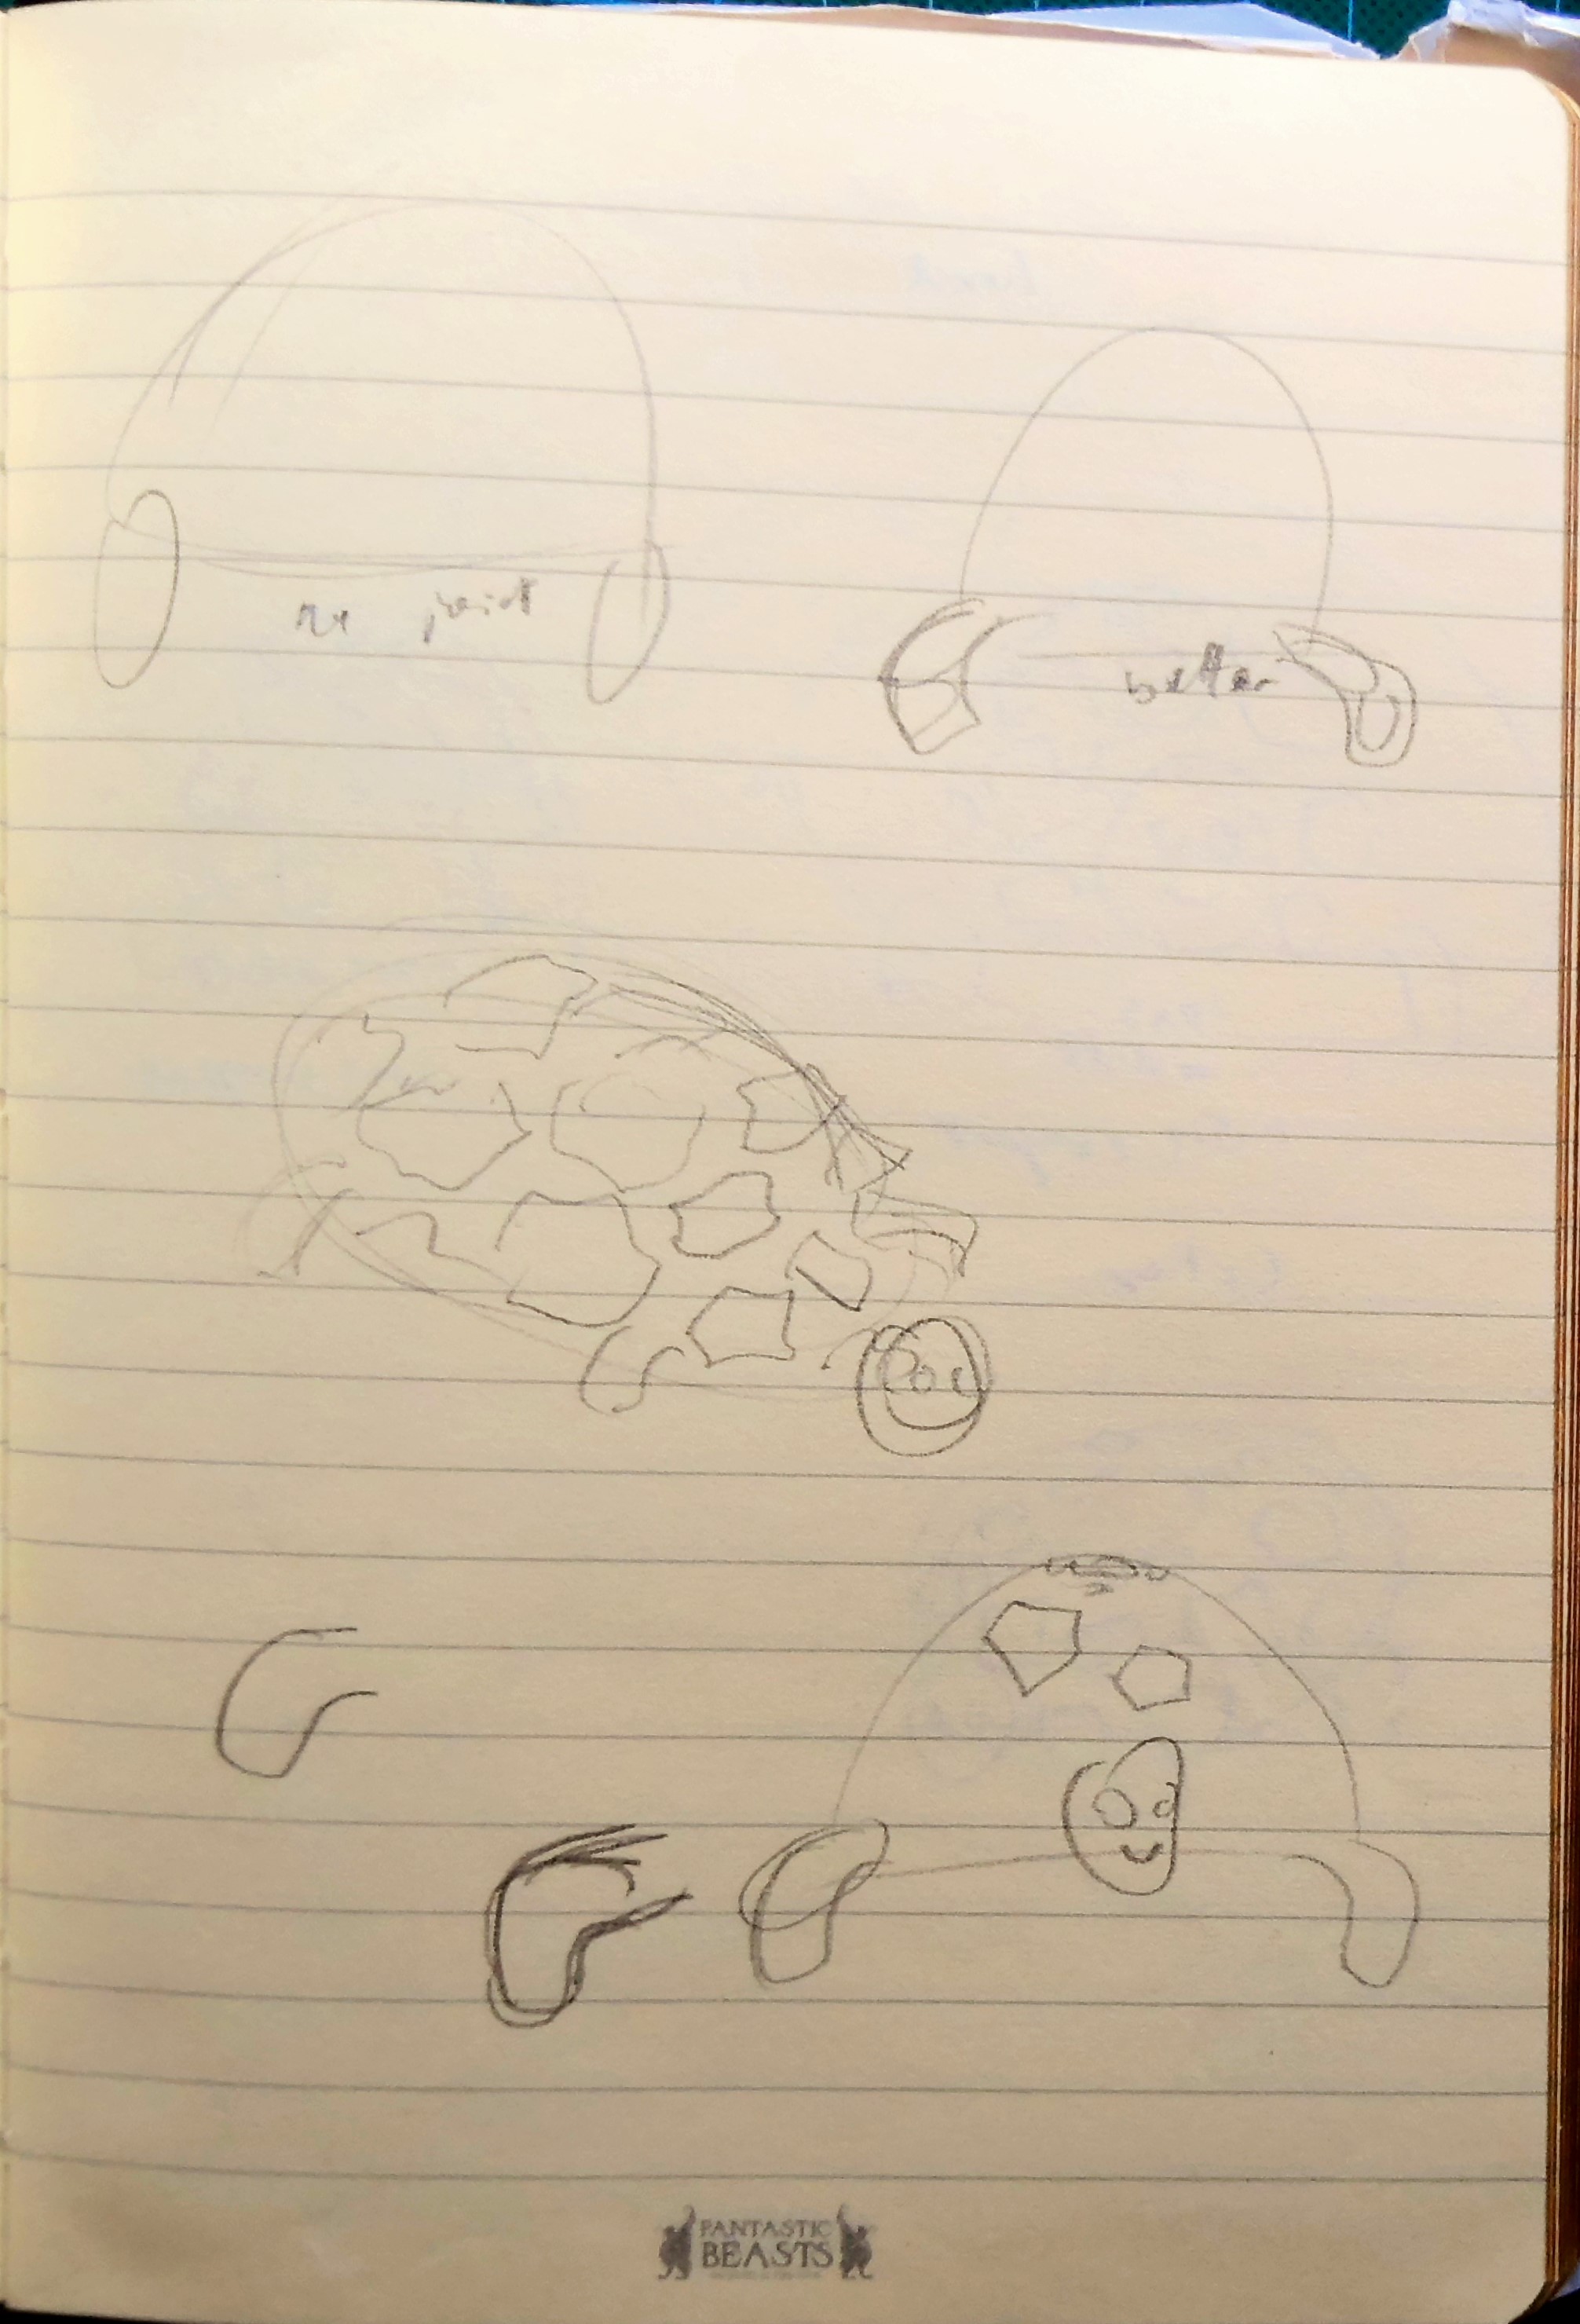 no joint
better
FANTASTIC
BEASTS